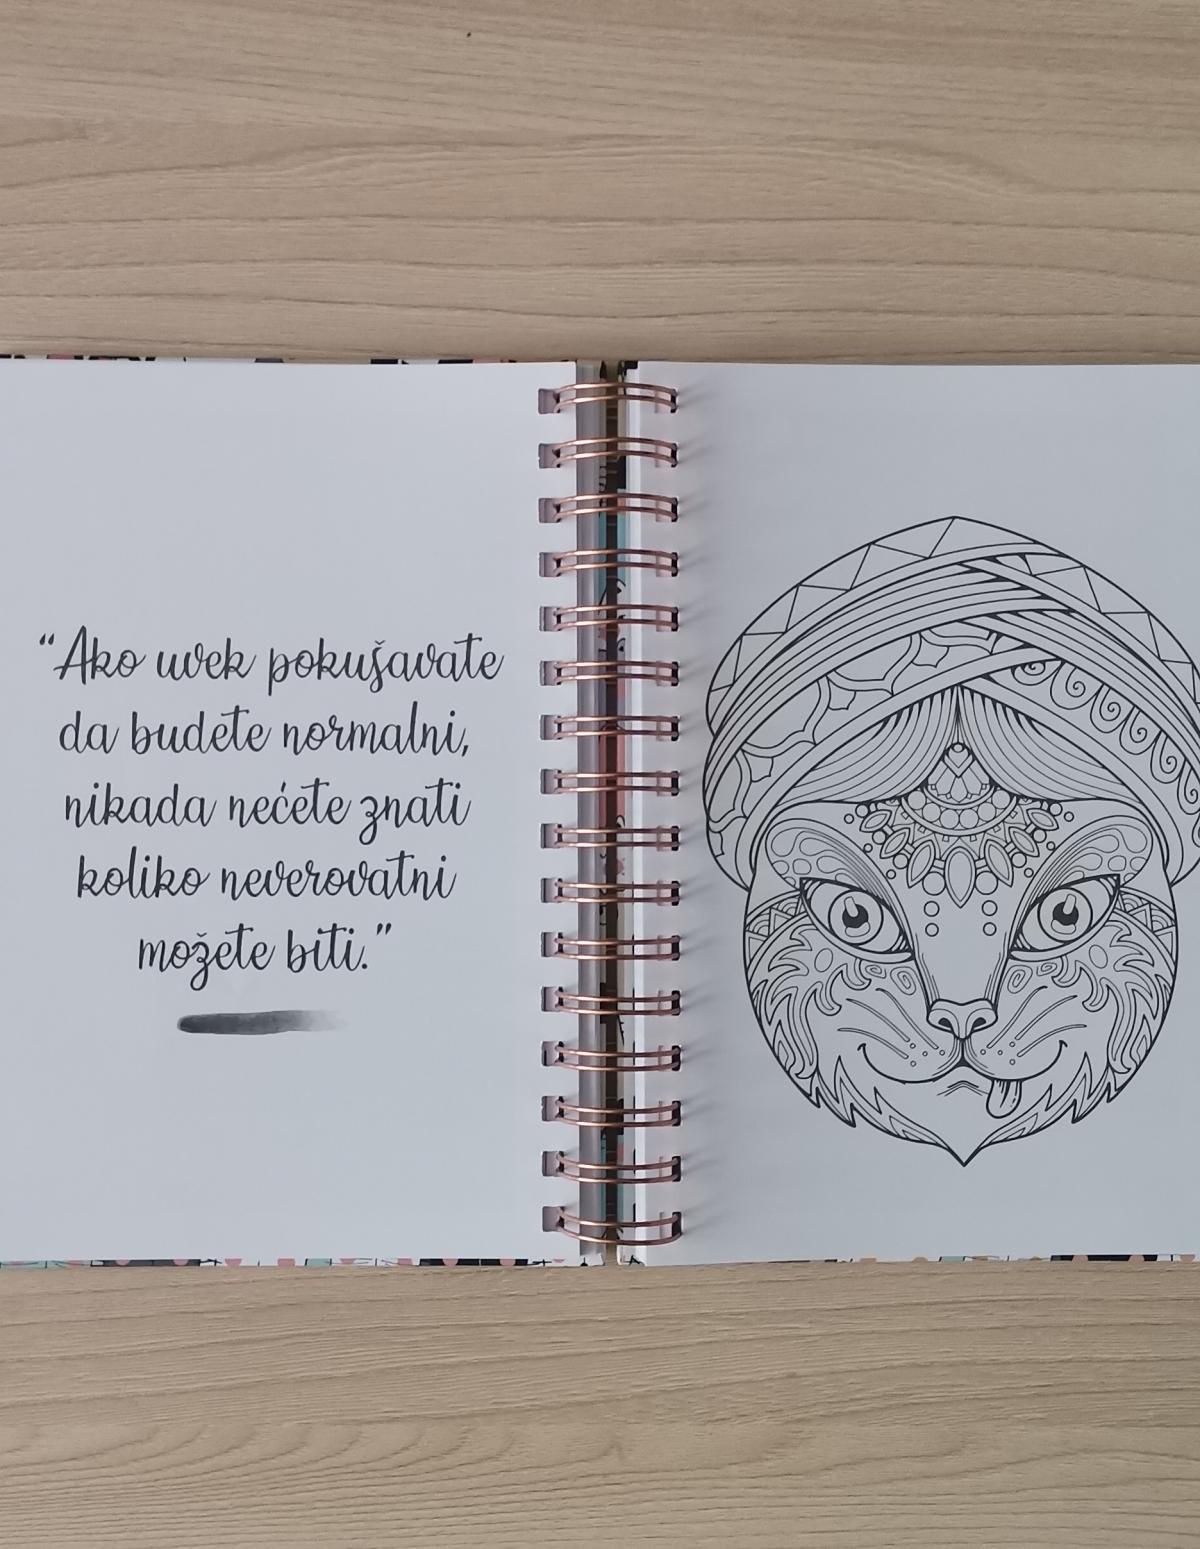 “Ako uvek pokušavate
da budete normalni,
nikada nećete znati
koliko neverovatni
možete biti.”